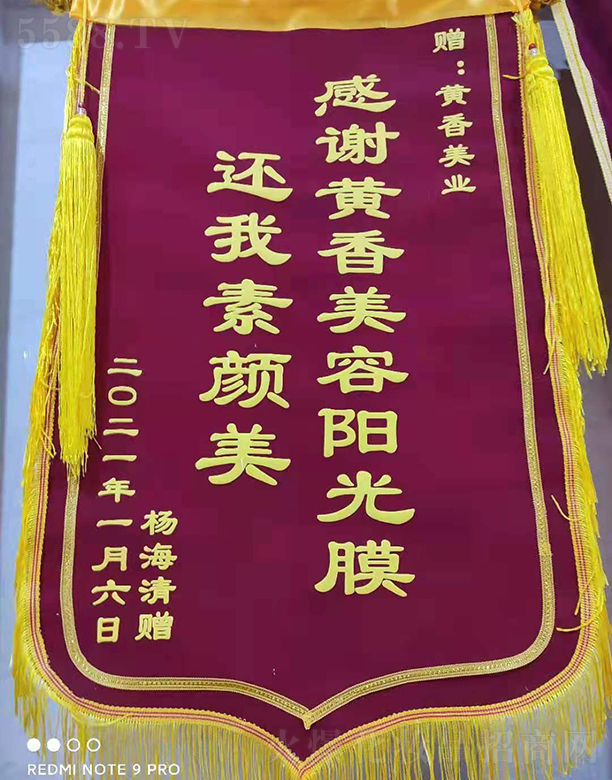 赠：黄香美业
感谢黄香美容阳光膜
还我素颜美
杨海清赠
二〇二一年一月六日
5588.TV
REDMI NOTE 9 PRO